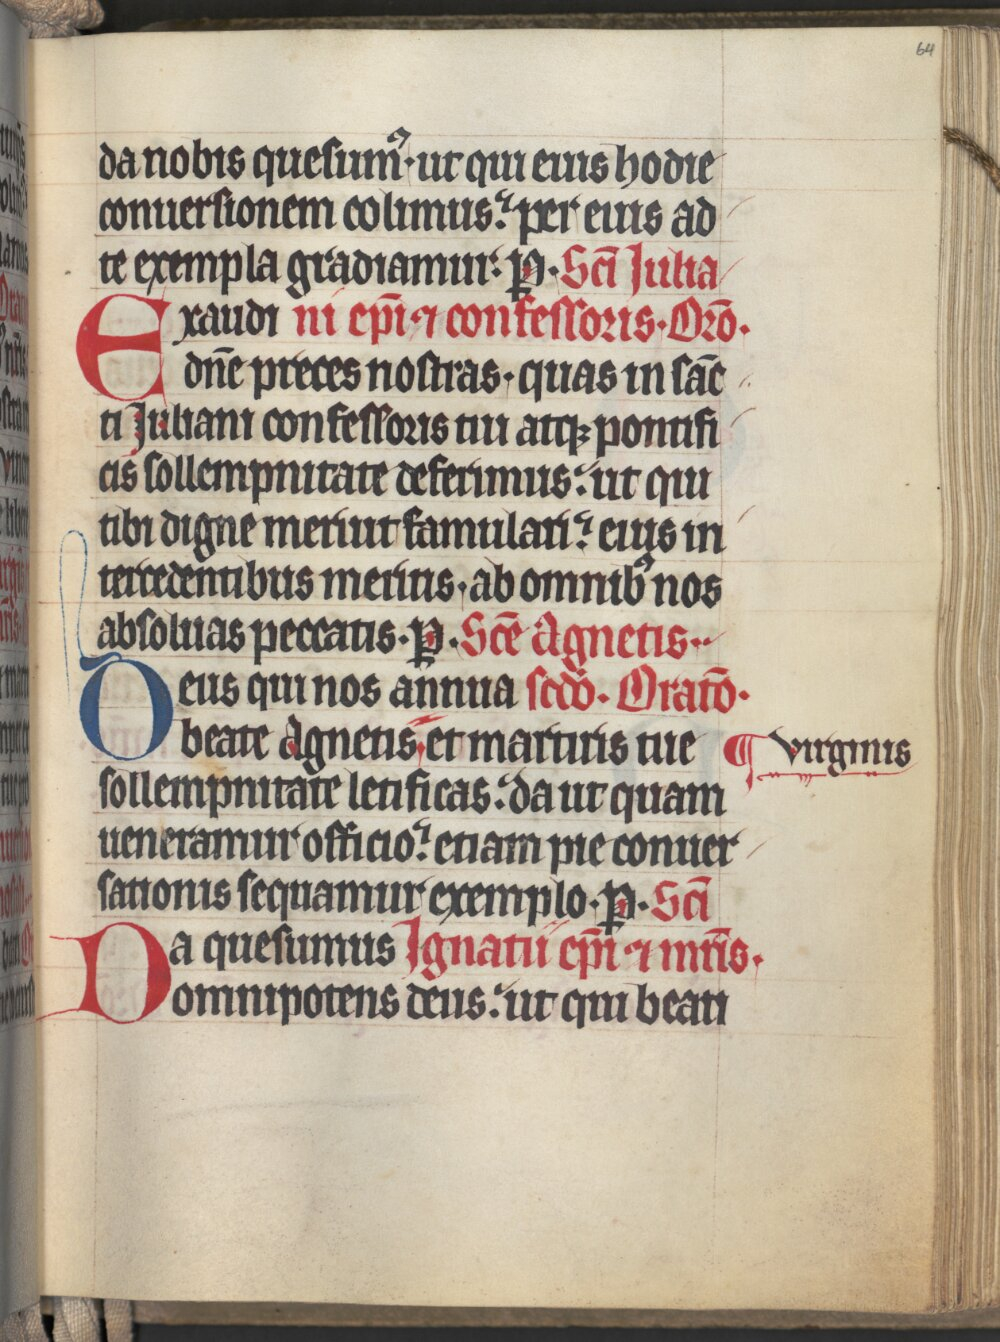 64
da nobis quesumꝰ· ut qui eius hodie
conuersionem colimus: per eius ad
te exempla gradiamur: P̲· Sc̄i Julia
Exaudi ni ep̄i ⁊ confessoris· Orō·
dn̄e preces nostras· quas in sāc
ti Juliani confessoris tui atqꝫ pontifi
cis sollempnitate deferimus: ut qui
tibi digne meruit famulari: eius in
tercedentibus meritis· ab omnibꝰ nos
absoluas peccatis· P̲· Sc̄e Agnetis··
Deus qui nos annua scd̄o· Oratō·
beate Agnetis et martiris tue ¶ virginis
sollempnitate letificas: da ut quam
ueneramur officio: etiam pie conuer
sationis sequamur exemplo· P̲· Sc̄i
Da quesumus Ignatii ep̄i ⁊ mr̄is·
omnipotens deus: ut qui beati